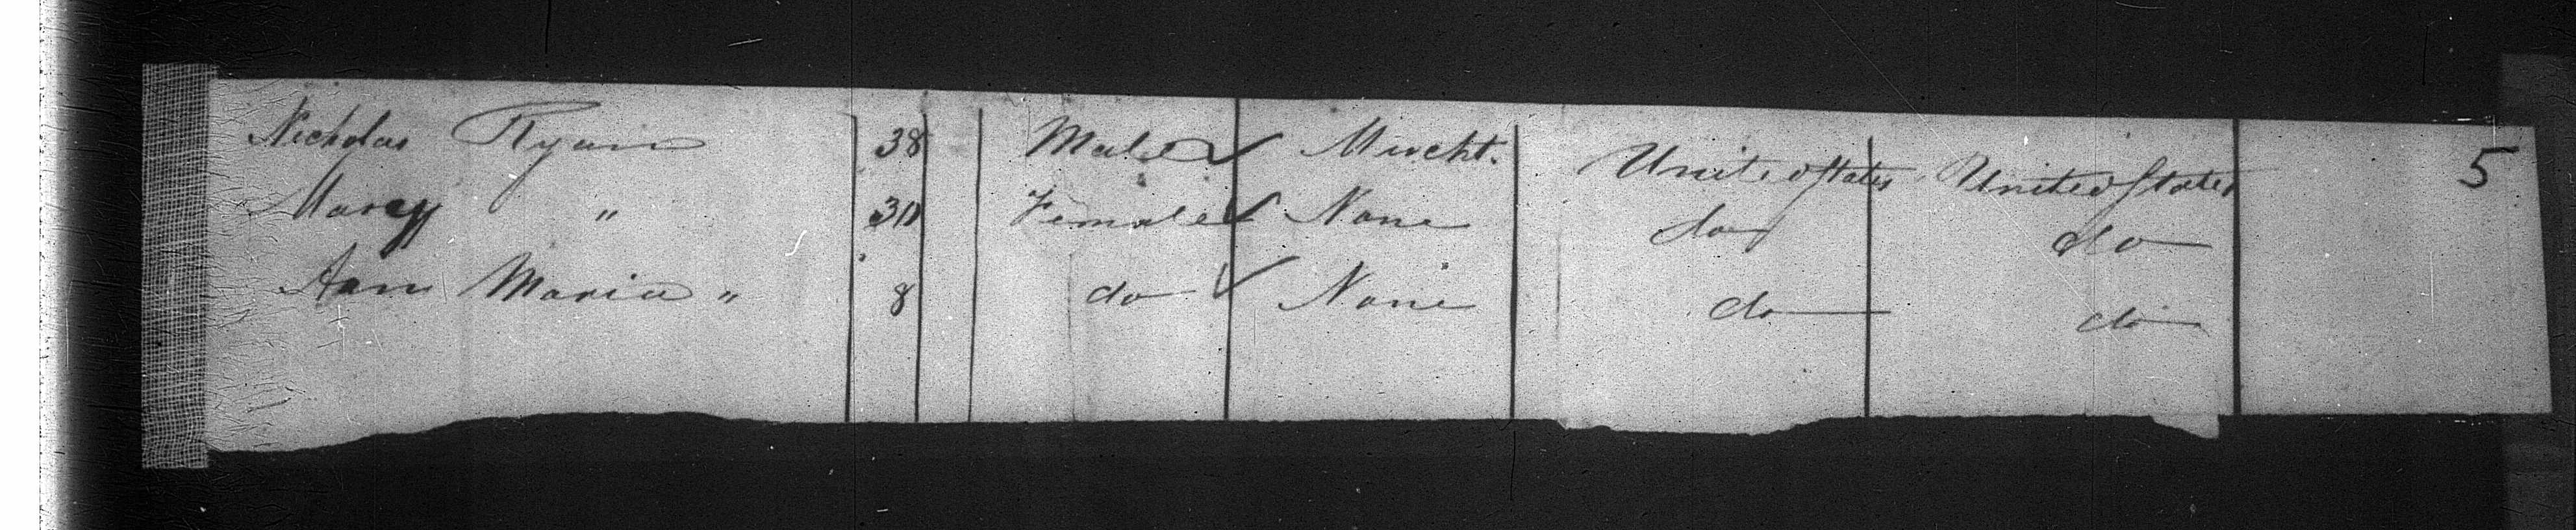 Nicholas Ryan 38 Male ✓ Mercht. United States United States 5
Mary " 30 Female ✓ None do do
Ann Maria " 8 do ✓ None do do